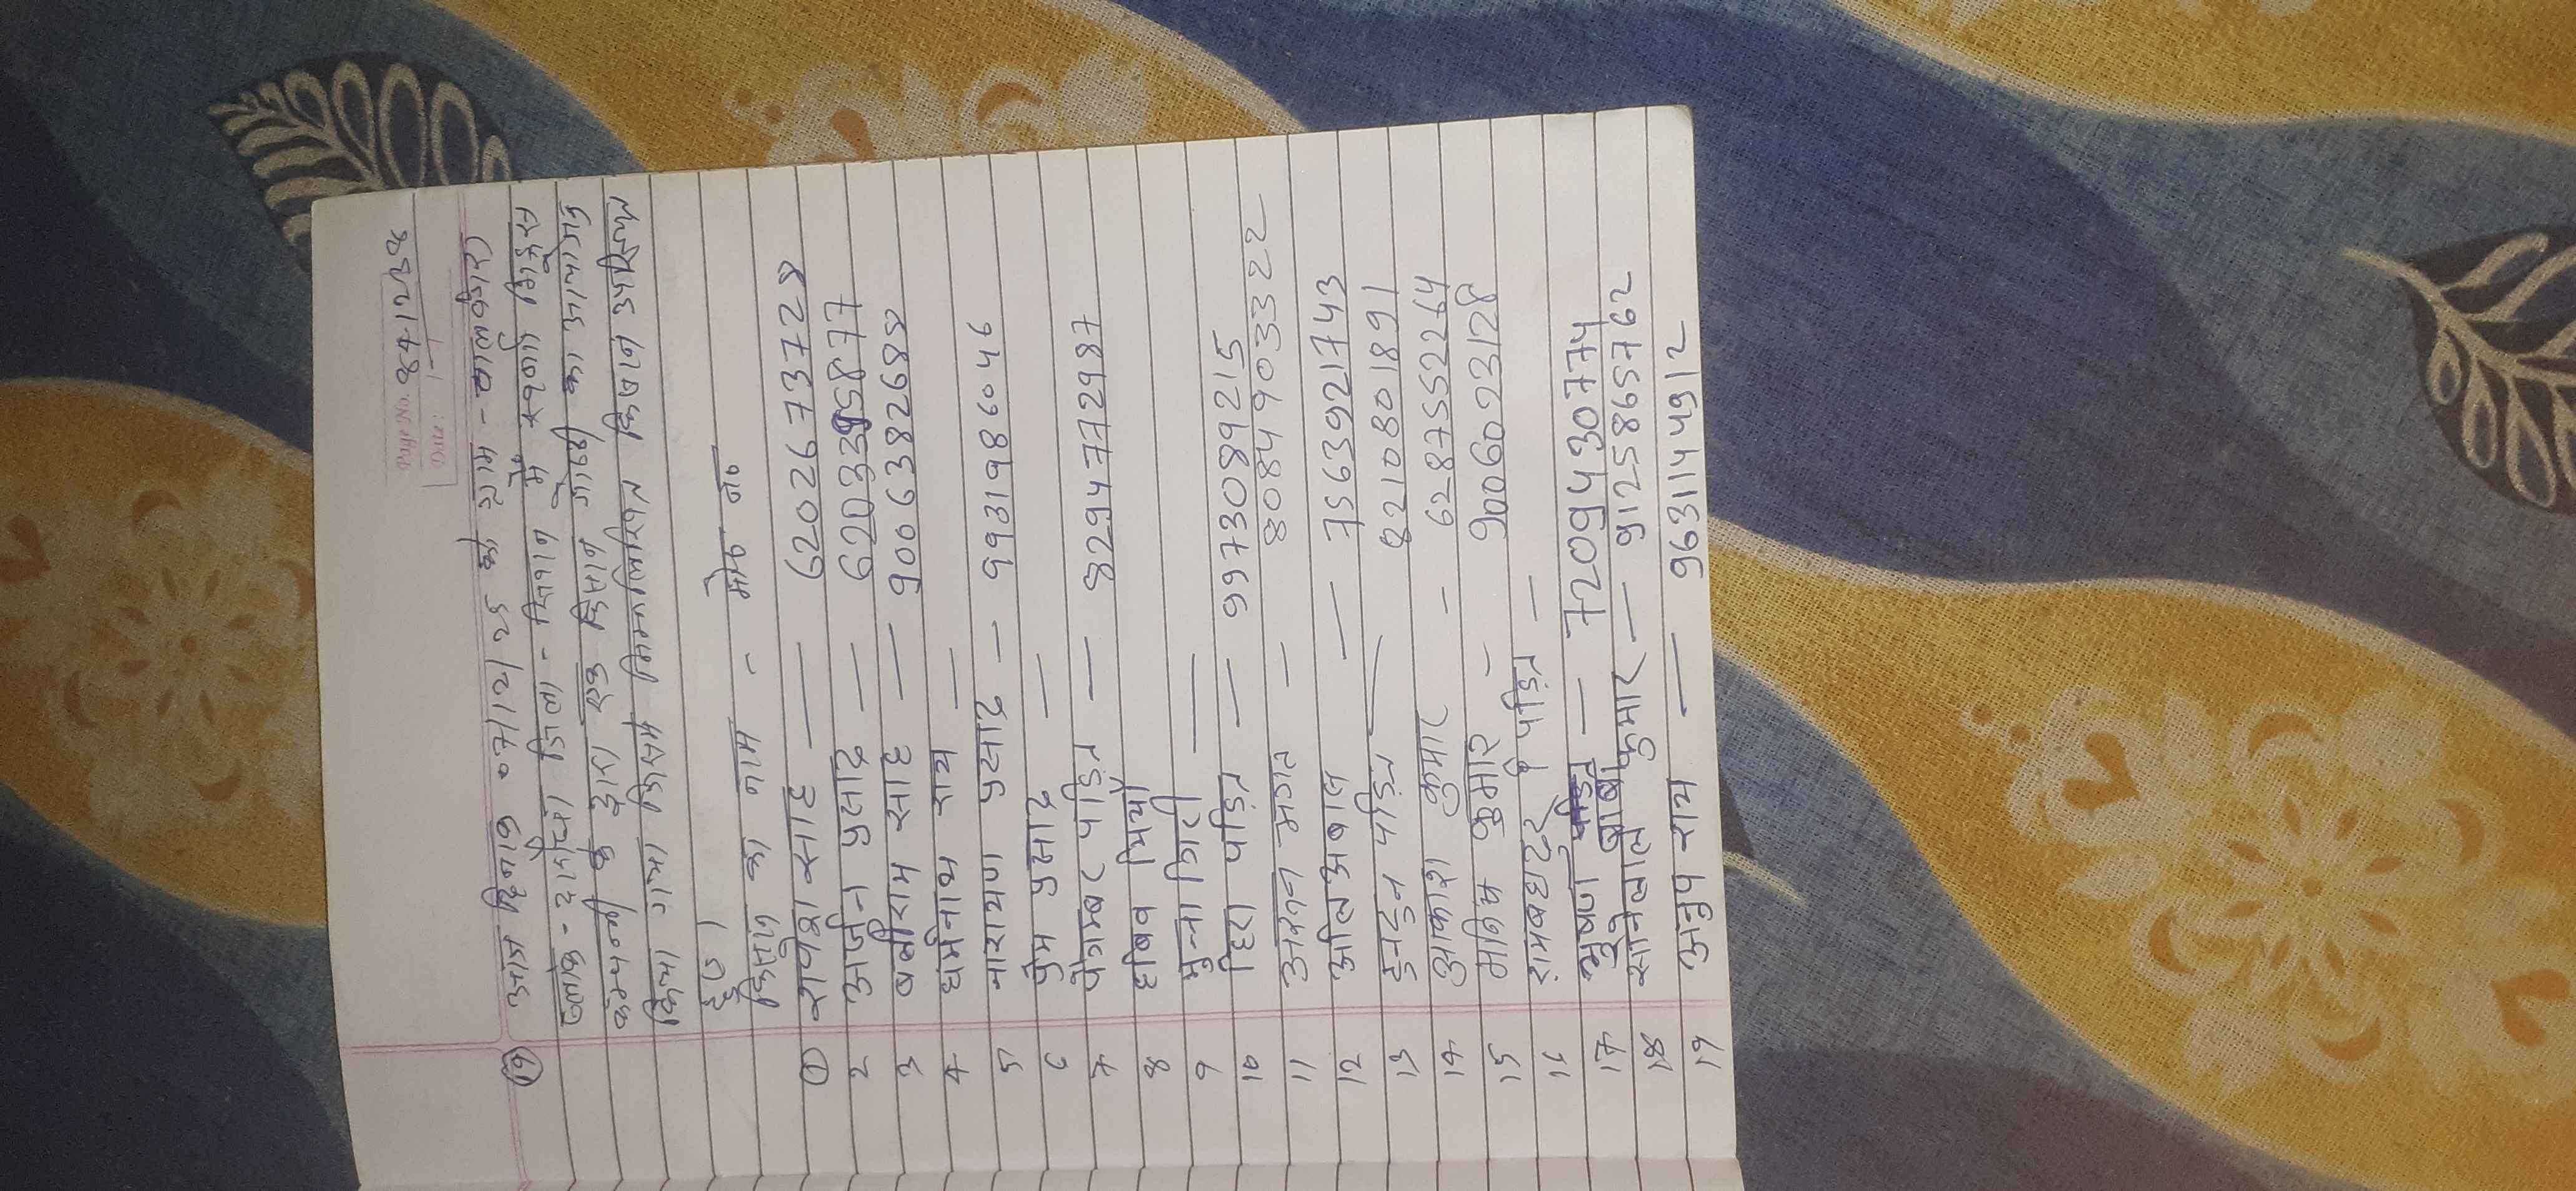 Page No. 841238
Date: 1-1
(19) आज दिनांक 07/12/25 को ग्राम - बालकोनी
ब्लाक - जिला - सिवान में स्वर्णा
कम्पनी के द्वारा एक किसान गोष्ठी का आयोजन
किया गया जिसमे निम्नलिखित किसान उपस्थित
हुए।
किसान का नाम - मो० न०
① साह — 6202673728
2 अर्जुन प्रसाद — 6203395877
3 बलीराम साह — 9006382684
4 धर्मनाथ राय —
5 नारायण प्रसाद — 9931986046
6 प्रेम प्रसाद —
7 पैगम्बर पंडित — 8294772987
8 हबिब मियाँ
9 मुन्ना गिरी —
10 हिरा पंडित — 9973089215
11 भगत — 8084903322
12 — 7563921743
13 पंडित — 8210801891
14 आकाश कुमार - 6287552264
15 कुमार - 9006023128
16 रामबहादुर पंडित —
17 भूषण पंडित — 7209430774
18 सोनेलाल कुमार — 9125865762
19 अनुप राय — 9631144912